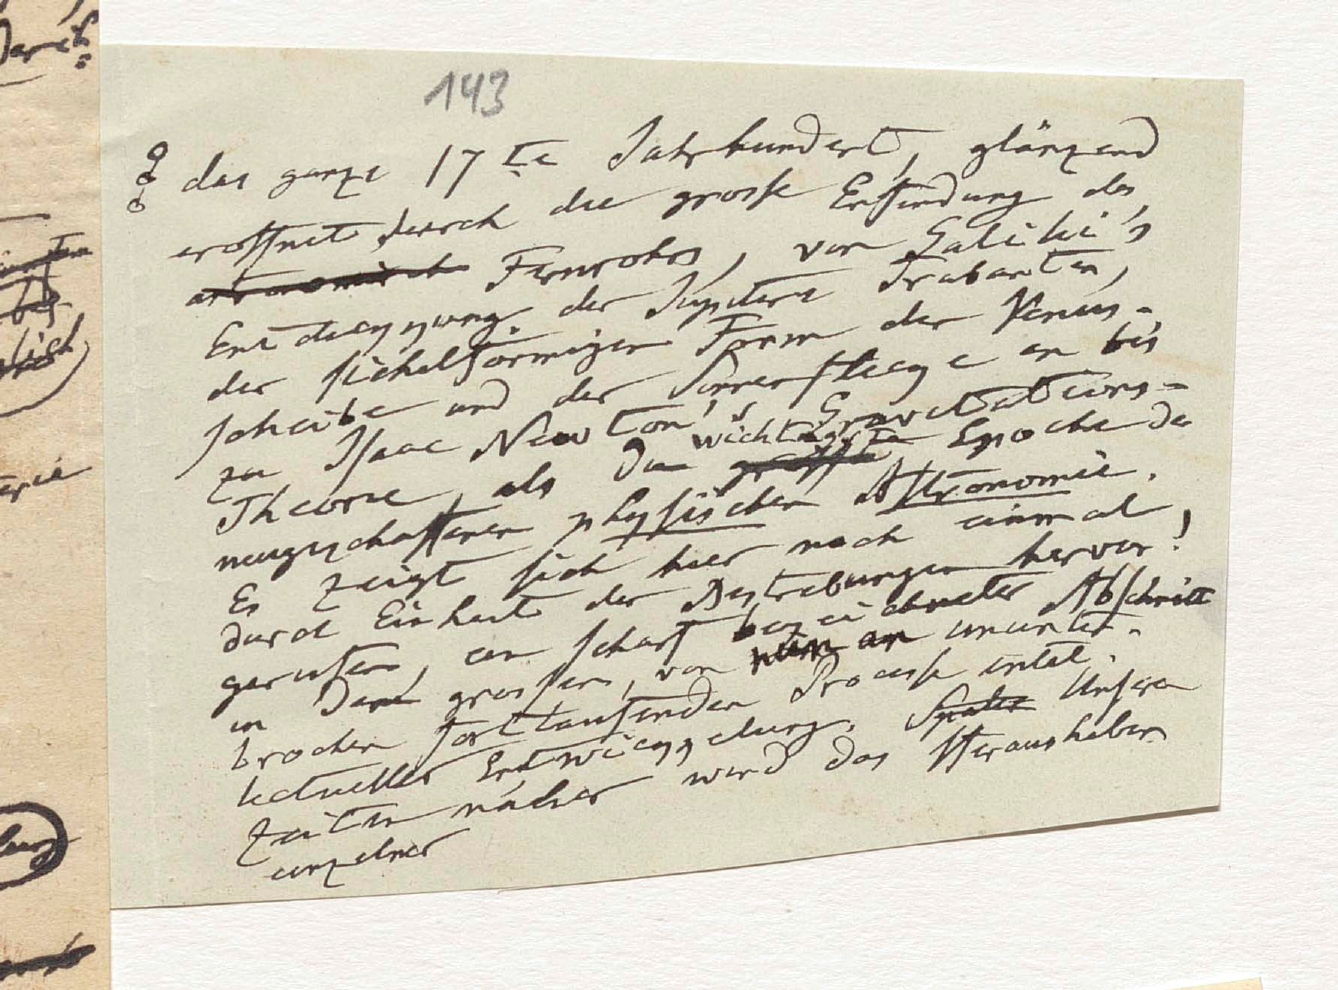 143
das ganze 17te Jahrhundert, glänzend
eröffnet durch die grosse Erfindung des
astronomisch Fernrohrs, von Galilei's
Entdeckung der Jupiters Trabanten,
der sichelförmigen Form der Venus-
scheibe und der Sonnenflecke an bis
zu Isaac Newton's Gravitations-
Theorie, als die wichtigste größte Epoche der
neugeschaffenen physischen Astronomie.
Es zeigt sich hier noch einmal,
durch Einheit der Bestrebungen hervor!
gerufen, ein scharf bezeichneter Abschnitt
in dem grossen, von nun an ununter-
brochen fortlaufenden Processe intel-
lectueller Entwickelung. Später Unseren
Zeiten näher wird das Herausheben
einzelner